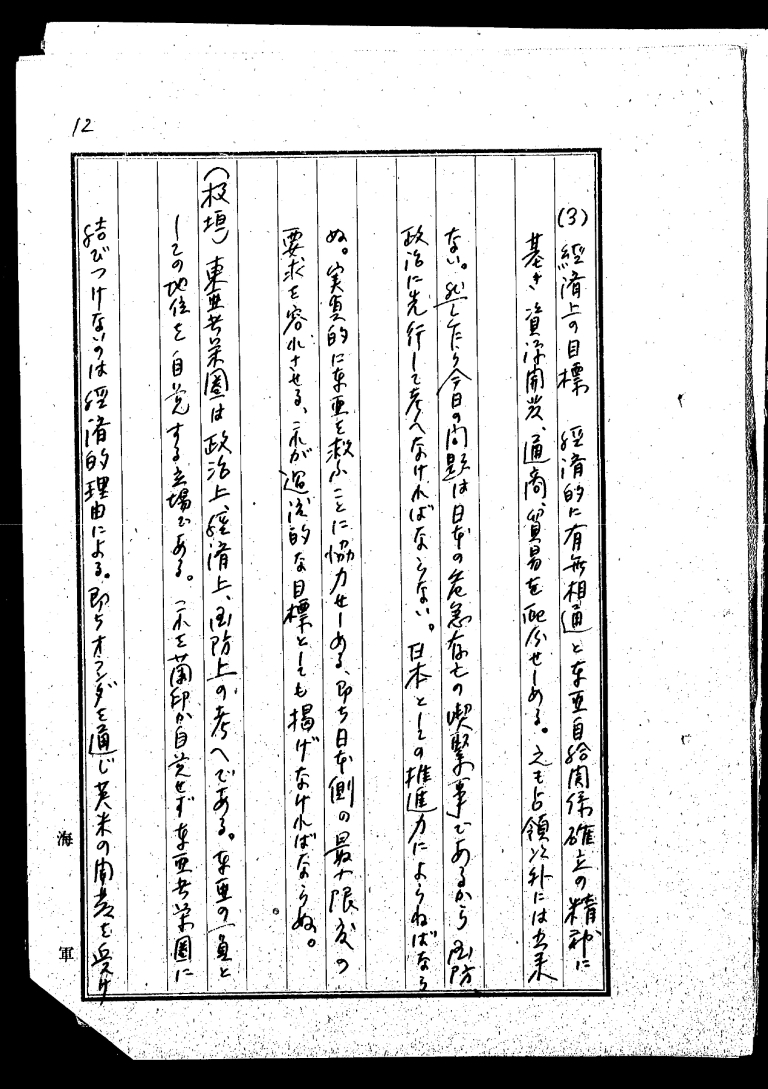 12
(3) 経済上の目標 経済的に有無相通と东亜自給関係確立の精神に
基き資源開発、通商、貿易を配分せしめる。之も占領以外には出来
ない。然しただ今日の問題は日本の危急存亡の喫緊事であるから国防
政治に先行して考へなければならない。日本としての推進力によらねばなら
ぬ。実質的に东亜を救ふことに協力せしめる、即ち日本側の最大限度の
要求を容れさせる、これが過渡的な目標としても掲げなければならぬ。
(板垣) 東亜共栄圏は政治上、経済上、国防上の考へである。东亜の一員と
しての地位を自覚する立場である。これを蘭印が自覚せず东亜共栄圏に
結びつけないのは経済的理由による。即ちオランダを通じ英米の開発を受け
海軍